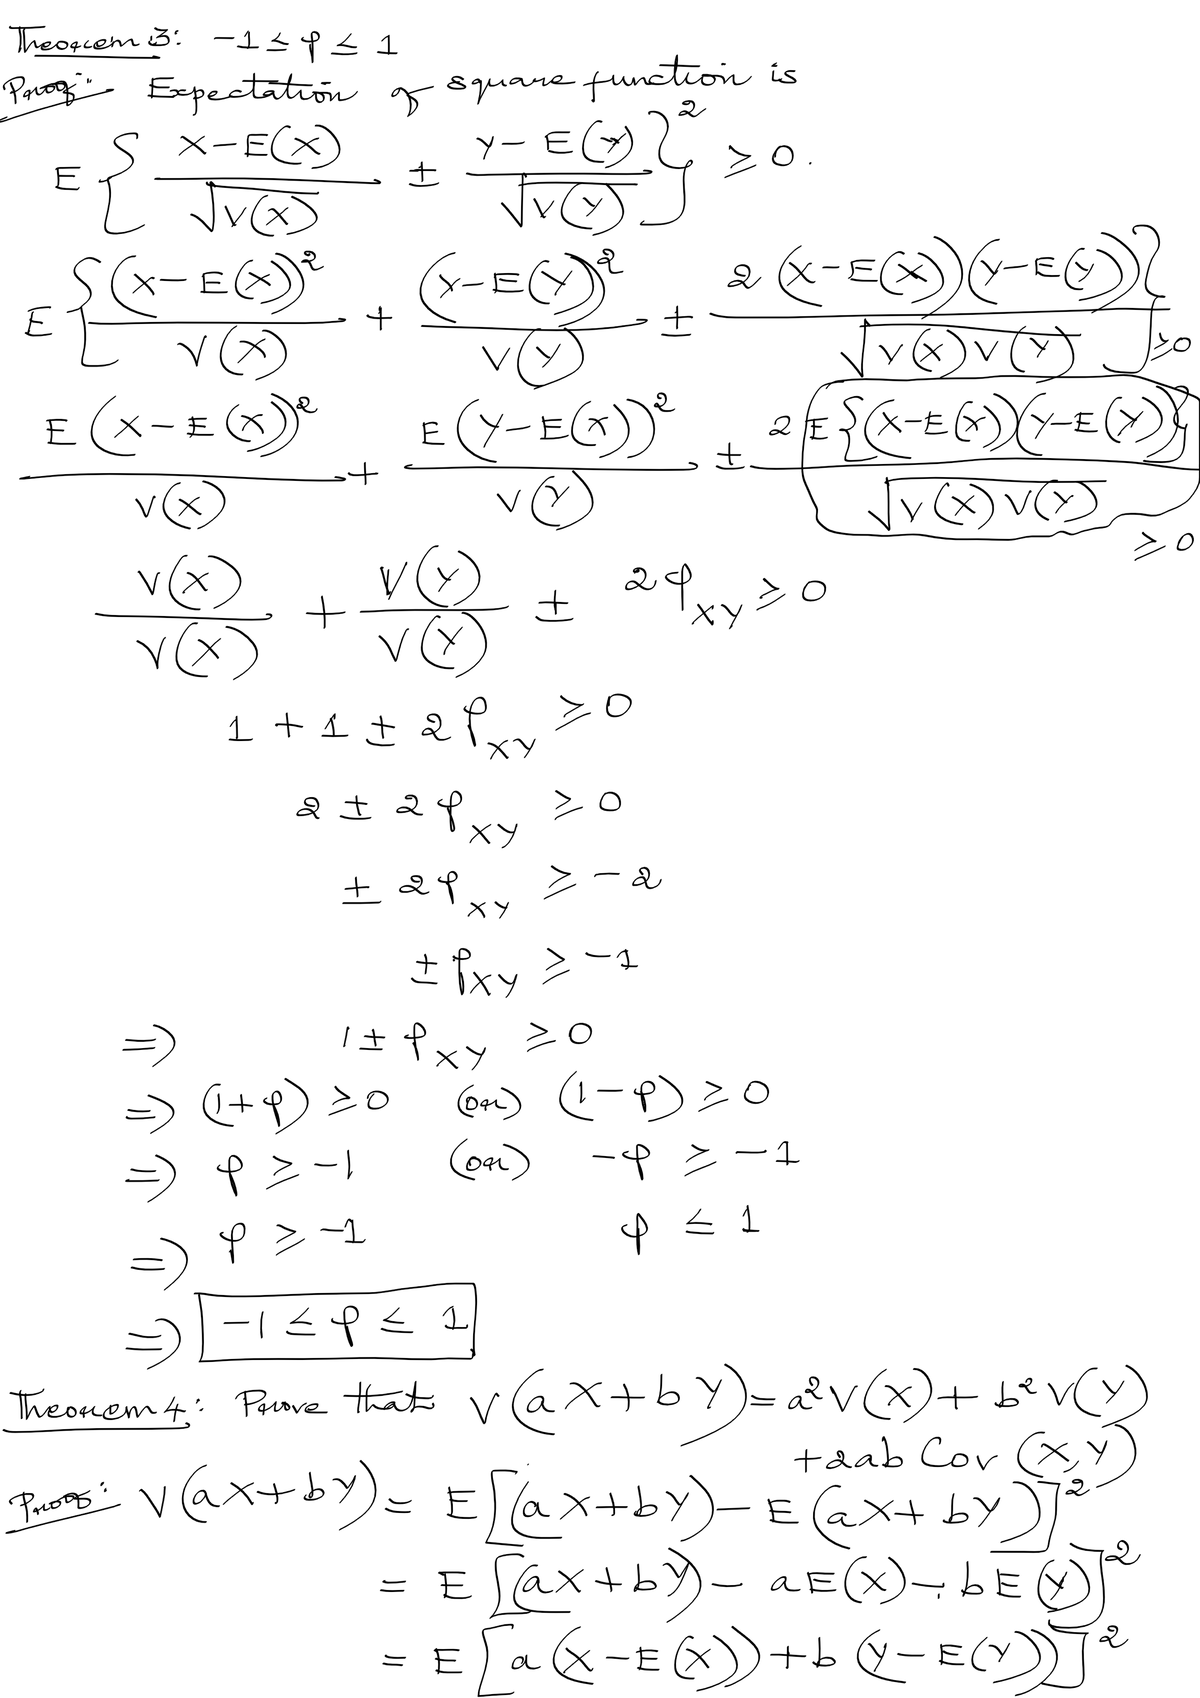 Theorem 3: -1 ≤ ρ ≤ 1
Proof:- Expectation of square function is
E { (X-E(X))/√V(X) ± (Y-E(Y))/√V(Y) }² ≥ 0.
E { (X-E(X))²/V(X) + (Y-E(Y))²/V(Y) ± 2(X-E(X))(Y-E(Y))/√V(X)V(Y) } ≥ 0
E(X-E(X))²/V(X) + E(Y-E(Y))²/V(Y) ± 2E{(X-E(X))(Y-E(Y)}/√V(X)V(Y) ≥ 0
V(X)/V(X) + V(Y)/V(Y) ± 2ρ_XY ≥ 0
1 + 1 ± 2ρ_XY ≥ 0
2 ± 2ρ_XY ≥ 0
± 2ρ_XY ≥ -2
± ρ_XY ≥ -1
⇒ 1 ± ρ_XY ≥ 0
⇒ (1+ρ) ≥ 0 (or) (1-ρ) ≥ 0
⇒ ρ ≥ -1 (or) -ρ ≥ -1
⇒ ρ ≥ -1 ρ ≤ 1
⇒ -1 ≤ ρ ≤ 1
Theorem 4: Prove that V(aX+bY) = a²V(X) + b²V(Y)
+2ab Cov(X,Y)
Proof: V(aX+bY) = E[(aX+bY) - E(aX+bY)]²
= E[(aX+bY) - aE(X) - bE(Y)]²
= E[a(X-E(X)) + b(Y-E(Y))]²